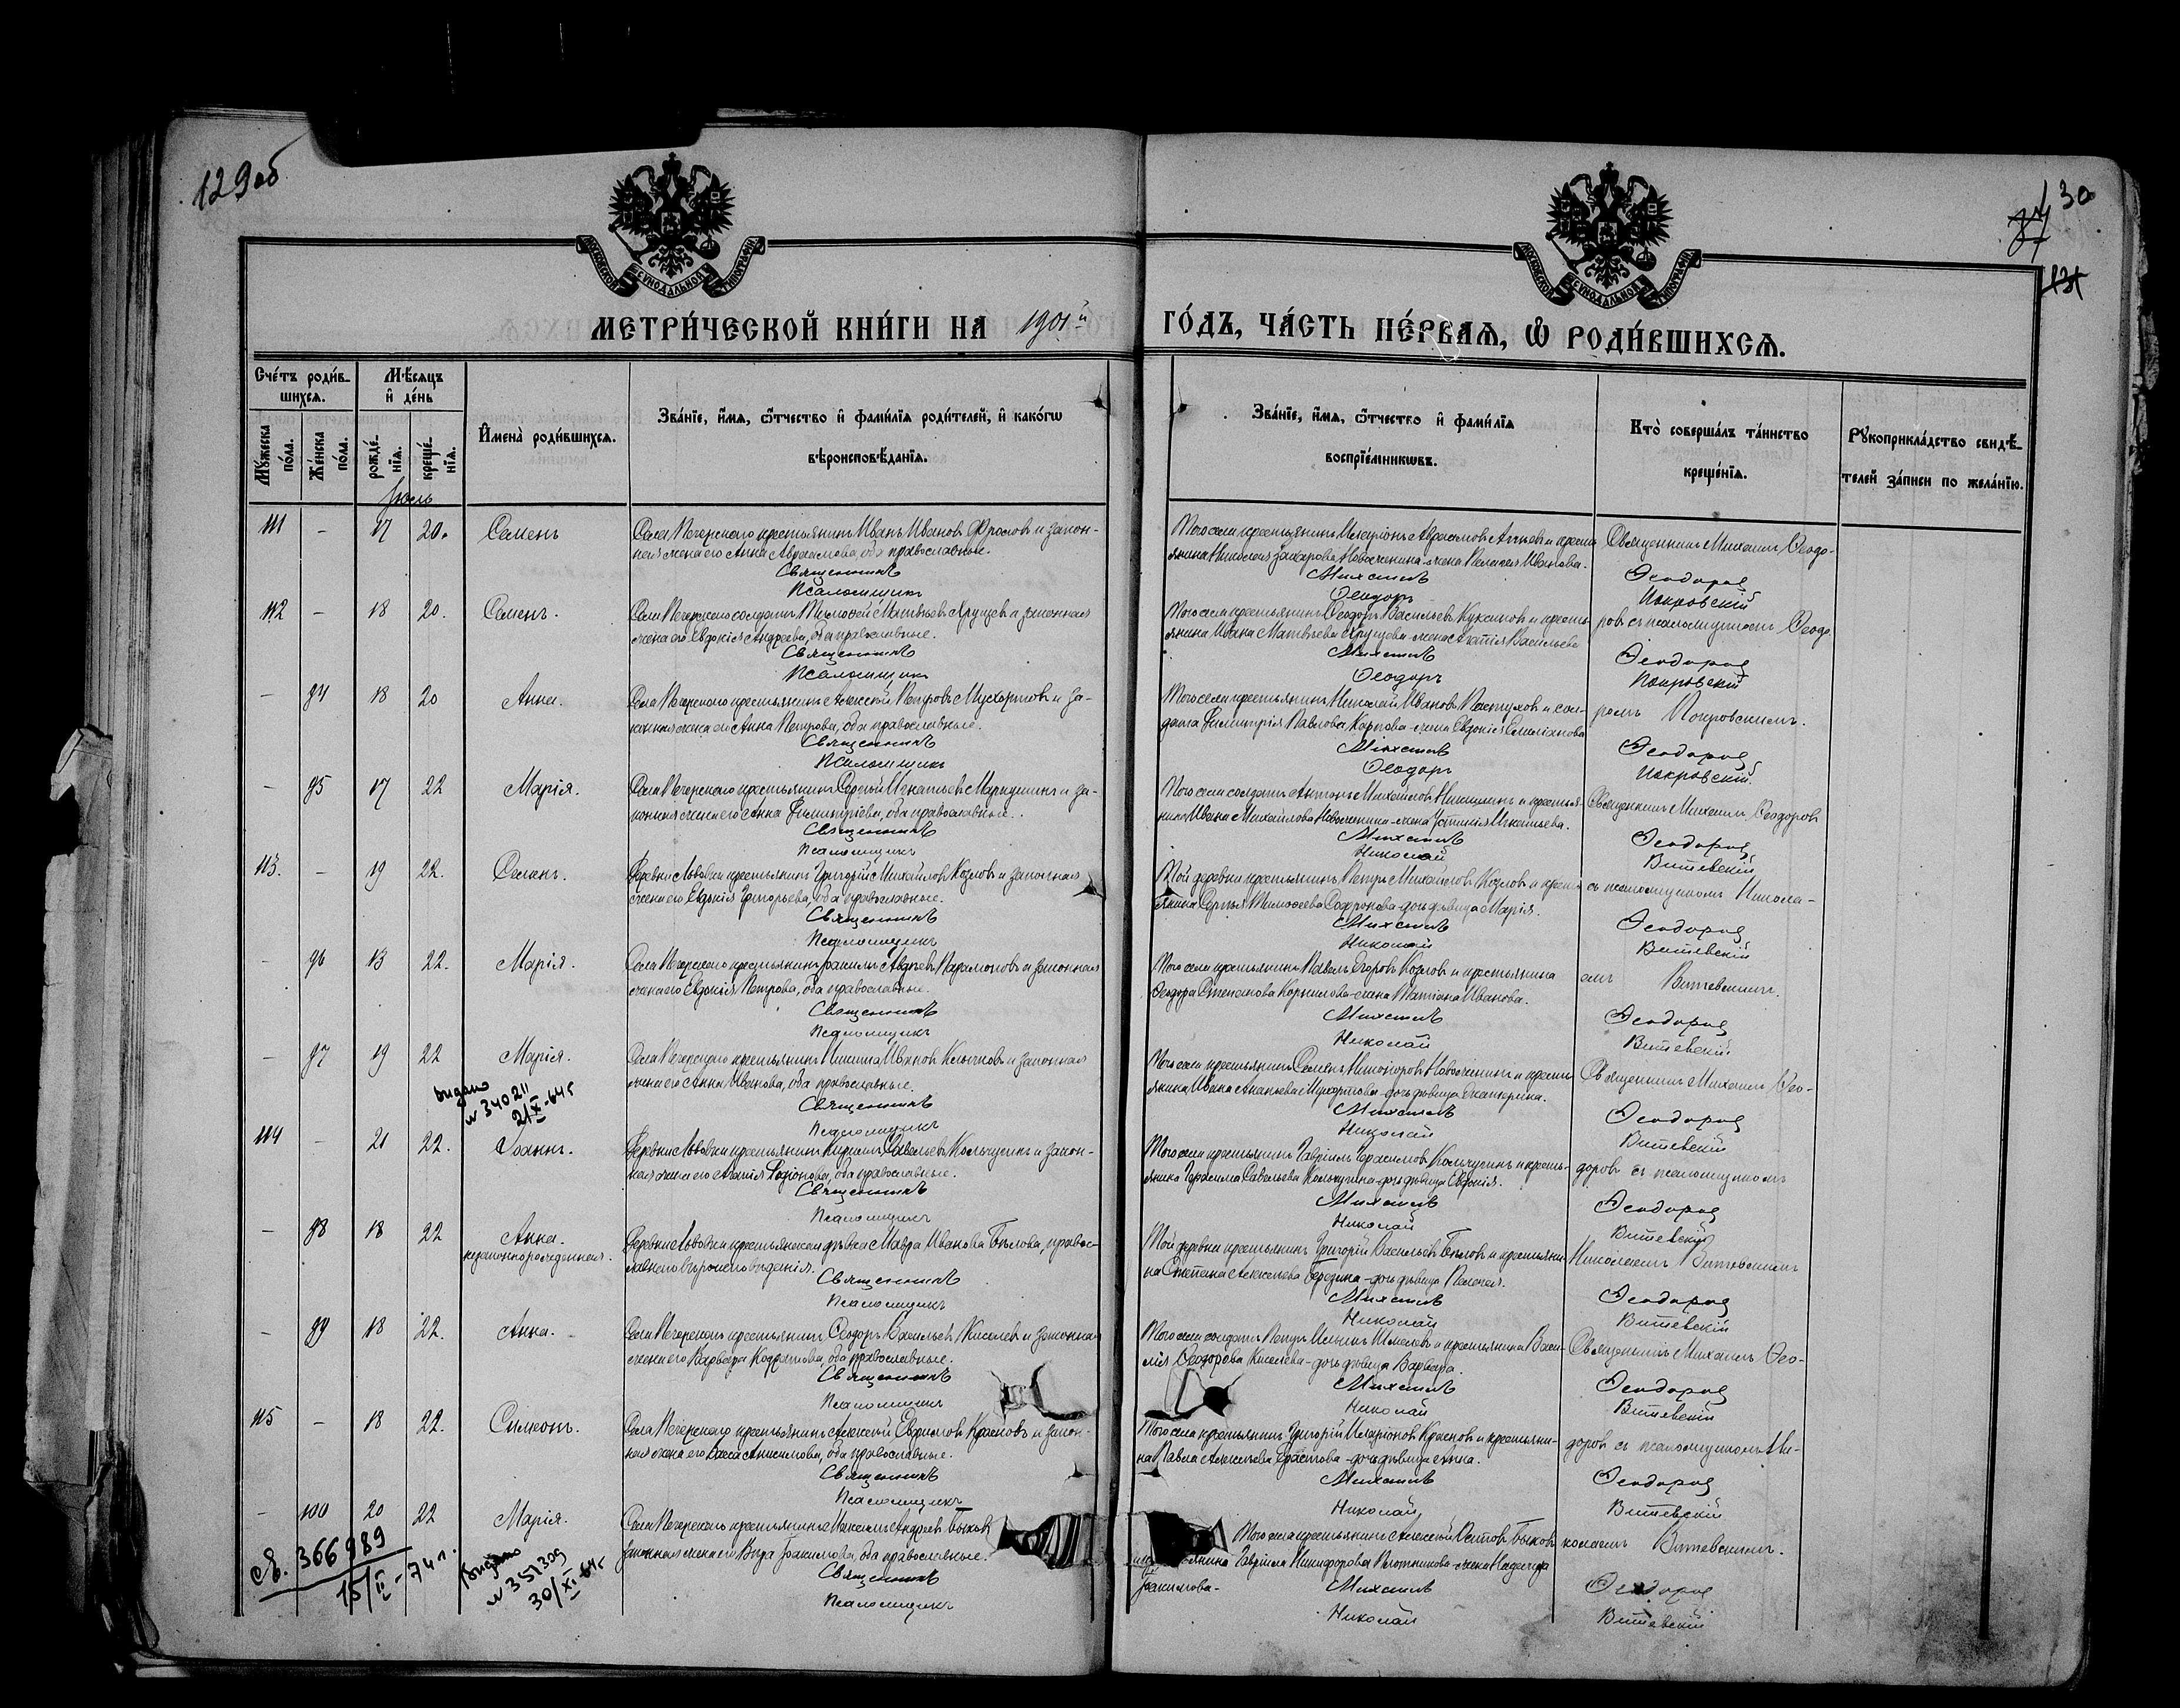 129об
130
МОСКОВСКОЙ СѴНОДАЛЬНОЙ ТИПОГРАФІИ
МОСКОВСКОЙ СѴНОДАЛЬНОЙ ТИПОГРАФІИ
МЕТРИ́ЧЕСКОЙ КНИ́ГИ НА 1901й ГО́ДЪ, ЧА́СТЬ ПЕ́РВАѦ, Ѡ҆ РОДИ́ВШИХСѦ.
Сче́тъ роди́в-
шихсѧ.
Мѣ́сѧцъ
и҆ де́нь
Мꙋ́жеска
по́ла.
Же́нска
по́ла.
рожде́-
нїѧ.
креще́-
нїѧ.
И҆мена̀ роди́вшихсѧ.
Зва́нїе, и҆́мѧ, ѻ҆́тчество и҆ фами́лїѧ роди́телей, и҆ како́гѡ
вѣроисповѣ́данїѧ.
Зва́нїе, и҆́мѧ, ѻ҆́тчество и҆ фами́лїѧ
воспрїе́мникѡвъ.
Кто̀ соверша́лъ та́инство
креще́нїѧ.
Рꙋкоприкла́дство свидѣ́-
телей за́писи по жела́нїю.
Іюль
111 – 17 20. Семенъ
Села Печерскаго крестьянинъ Иванъ Ивановъ Фроловъ и закон-
ная жена его Анна Авраамова, оба православные.
Священникъ
Псаломщикъ
Того села крестьянинъ Иларіонъ Авраамовъ и кресть-
янина Николая Захарова Новоженина жена Пелагея Иванова.
Михаилъ
Ѳеодоръ
Священникъ Михаилъ Ѳеодо-
Ѳеодоровъ
Покровскій
112 – 18 20. Семенъ.
Села Печерскаго солдатъ Тимоѳей Матвѣевъ Хрущевъ и законная
жена его Евдокія Андреева, оба православные.
Священникъ
Псаломщикъ
Того села крестьянинъ Ѳеодоръ Васильевъ и кресть-
янина Ивана Матвѣева Хрущева жена Васильева
Михаилъ
Ѳеодоръ
ровъ съ псаломщикомъ Ѳеодо-
Ѳеодоровъ
Покровскій
– 94 18 20 Анна.
Села Печерскаго крестьянинъ Алексѣй Петровъ Мухортовъ и за-
конная жена его Анна Петрова, оба православные.
Священникъ
Псаломщикъ
Того села крестьянинъ Николай Ивановъ Пастуховъ и сол-
дата Димитрія Павлова Карпова жена Евдокія Емеліанова
Михаилъ
Ѳеодоръ
ромъ Покровскимъ.
Ѳеодоровъ
Покровскій
– 95 17 22 Марія.
Села Печерскаго крестьянинъ Сергѣй Игнатьевъ и за-
конная жена его Анна Димитріева, оба православные.
Священникъ
Псаломщикъ
Того села солдатъ Антонъ Михайловъ Никишинъ и крестья-
нина Ивана Михайлова Новоженина жена Устинія Игнатьева.
Михаилъ
Николай
Священникъ Михаилъ Ѳеодоровъ
Ѳеодоровъ
Витевскій
113. – 19 22. Семенъ.
Деревни Львовки крестьянинъ Григорій Михайловъ Козловъ и законная
жена его Евдокія Григорьева, оба православные.
Священникъ
Псаломщикъ
Той деревни крестьянинъ Петръ Михайловъ Козловъ и кресть-
янина Сергѣя Тимоѳеева Софронова дочь дѣвица Марія.
Михаилъ
Николай
съ псаломщикомъ Никола-
Ѳеодоровъ
Витевскій
– 96 13 22. Марія.
Села Печерскаго крестьянинъ Іоакимъ Авдѣевъ Парамоновъ и законная
жена его Евдокія Петрова, оба православные.
Священникъ
Псаломщикъ
Того села крестьянинъ Павелъ Егоровъ Козловъ и крестьянина
Ѳеодора Степанова Корнилова жена Татіана Иванова.
Михаилъ
Николай
емъ Витевскимъ.
Ѳеодоровъ
Витевскій
– 97 19 22 Марія.
Села Печерскаго крестьянинъ Никита Ивановъ Клычковъ и законная
жена его Анна Иванова, оба православные.
Священникъ
Псаломщикъ
Того села крестьянинъ Семенъ Никоноровъ Новоженинъ и кресть-
янина Ивана Ананьева Мухортова дочь дѣвица Екатерина.
Михаилъ
Николай
Священникъ Михаилъ Ѳео-
Ѳеодоровъ
Витевскій
выдано
№ 340211
21/X-64г
114 – 21 22. Іоаннъ.
Деревни Львовки крестьянинъ Кириллъ Савельевъ Кольчугинъ и закон-
ная жена его Агапія Родіонова, оба православные.
Священникъ
Псаломщикъ
Того села крестьянинъ Гавріилъ Герасимовъ Кольчугинъ и кресть-
янина Герасима Савельева Кольчугина дочь дѣвица Евдокія.
Михаилъ
Николай
доровъ съ псаломщикомъ
Ѳеодоровъ
Витевскій
– 98 18 22 Анна.
незаконнорожденная.
Деревни Львовки крестьянская дѣвка Мавра Иванова Бѣлова, правос-
лавнаго вѣроисповѣданія.
Священникъ
Псаломщикъ
Той деревни крестьянинъ Григорій Васильевъ Бѣловъ и крестьяни-
на Степана Алексѣева Бередина дочь дѣвица Пелагея.
Михаилъ
Николай
Николаемъ Витевскимъ
Ѳеодоровъ
Витевскій
– 99 18 22. Анна.
Села Печерскаго крестьянинъ Ѳеодоръ Васильевъ Киселевъ и законная
жена его Варвара Кодратова, оба православные.
Священникъ
Псаломщикъ
Того села солдатъ Петръ Ильинъ Шмелевъ и крестьянина Васи-
лія Ѳеодорова Киселева дочь дѣвица Варвара.
Михаилъ
Николай
Священникъ Михаилъ Ѳео-
Ѳеодоровъ
Витевскій
115 – 18 22. Симеонъ.
Села Печерскаго крестьянинъ Алексѣй Евдокимовъ Красновъ и закон-
ная жена его Васса Анисимова, оба православные.
Священникъ
Псаломщикъ
Того села крестьянинъ Григорій Иларіоновъ Красновъ и крестьяни-
на Павла Алексѣева Ерастова дочь дѣвица Анна.
Михаилъ
Николай
доровъ съ псаломщикомъ Ни-
Ѳеодоровъ
Витевскій
– 100 20 22 Марія.
Села Печерскаго крестьянинъ Максимъ Андреевъ Быковъ
законная жена его Вѣра Іоакимова, оба православные.
Священникъ
Псаломщикъ
Того села крестьянинъ Алексѣй Осиповъ Быковъ
Гавріила Никифорова Плотникова жена Надежда
Іоакимова.
Михаилъ
Николай
колаемъ Витевскимъ.
Ѳеодоровъ
Витевскій
св. 366989
15/II-74г.
выдано
№ 351309
30/XI-64г